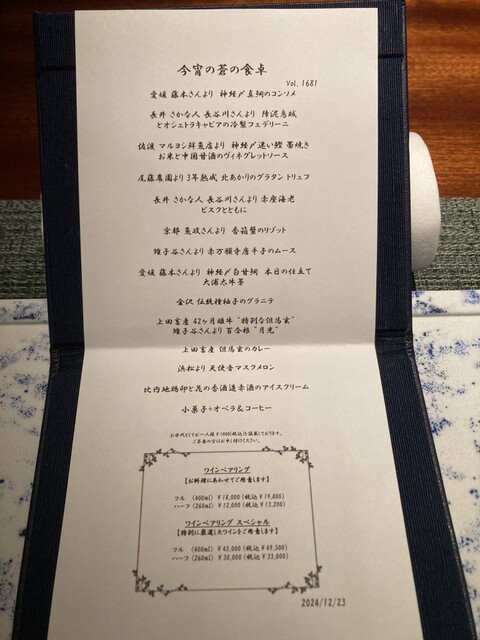 今宵の蒼の食卓
Vol. 1681
愛媛 藤本さんより 神経〆真鯛のコンソメ
長井 さかな人 長谷川さんより 障泥烏賊
とオシェトラキャビアの冷製フェデリーニ
佐渡 マルヨシ鮮魚店より 神経〆迷い鰹 藁焼き
お米と中国甘酒のヴィネグレットソース
尾藤農園より3年熟成 北あかりのグラタン トリュフ
長井 さかな人 長谷川さんより 赤座海老
ビスクとともに
京都 魚政さんより 香箱蟹のリゾット
雉子谷さんより 赤万願寺唐辛子のムース
愛媛 藤本さんより 神経〆白甘鯛 本日の仕立て
大浦太牛蒡
金沢 伝統種柚子のグラニテ
上田畜産 42ヶ月雌牛 "特別な但馬玄"
雉子谷さんより 百合根 "月光"
上田畜産 但馬玄のカレー
浜松より 天使音マスクメロン
比内地鶏卵と花の香酒造赤酒のアイスクリーム
小菓子+オペラ&コーヒー
お水代としてお一人様￥1000(税込)を頂戴しております。
ご不要の方はお申し付けください。
ワインペアリング
【お料理にあわせてご用意します】
フル (400ml) ￥18,000 (税込￥19,800)
ハーフ (260ml) ￥12,000 (税込￥13,200)
ワインペアリング スペシャル
【特別に厳選したワインをご用意します】
フル (400ml) ￥45,000 (税込 ￥49,500)
ハーフ (260ml) ￥30,000 (税込 ￥33,000)
2024/12/23